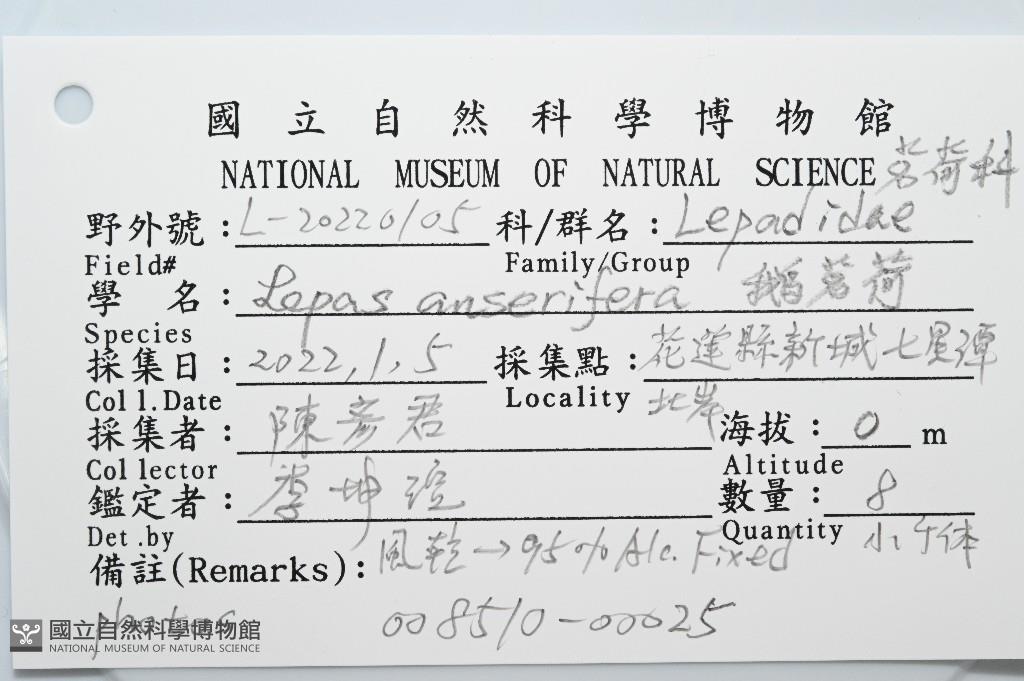 國立自然科學博物館
NATIONAL MUSEUM OF NATURAL SCIENCE 茗荷科
野外號：L-20220105 科/群名：Lepadidae
Field# Family/Group
學名：Lepas anserifera 鵝茗荷
Species
採集日：2022,1,5 採集點：花蓮縣新城七星潭
Coll.Date Locality 北岸
採集者：陳彥君 海拔：0 m
Collector Altitude
鑑定者：李坤瑄 數量：8
Det.by Quantity 小个体
備註(Remarks)：風乾→95% Alc. Fixed
photos 008510-00025
國立自然科學博物館
NATIONAL MUSEUM OF NATURAL SCIENCE